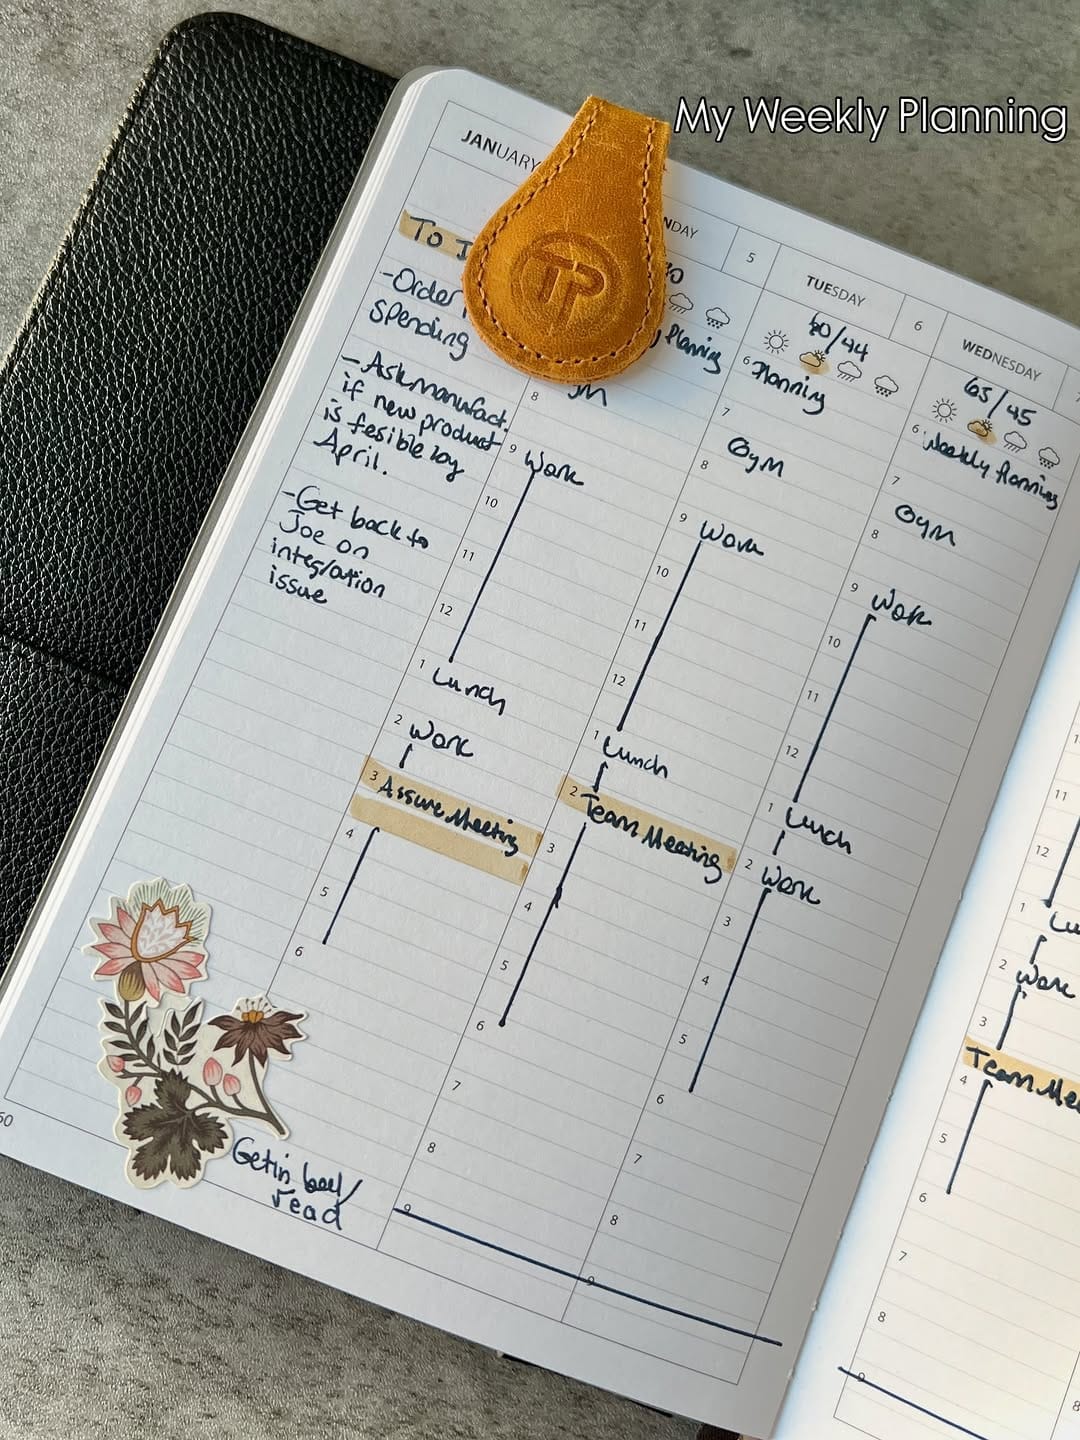 My Weekly Planning
JANUARY
To
-Order
Spending
-Ask manufact.
if new product
is fesible by
April.
-Get back to
Joe on
integration
issue
Get in bed/
read
60
TP
NDAY
Planning
8
9 Work
10
11
12
1 Lunch
2 Work
3 Assure Meeting
4
5
6
5
TUESDAY
60/44
6 Planning
7
8 Gym
9 Work
10
11
12
1 Lunch
2 Team Meeting
3
4
5
6
7
8
9
6
WEDNESDAY
65/45
6 Weekly Planning
7
8 Gym
9 Work
10
11
12
1 Lunch
2 Work
3
4
5
6
7
8
9
11
12
1
2 Work
3
Team
4
5
6
7
8
9
8